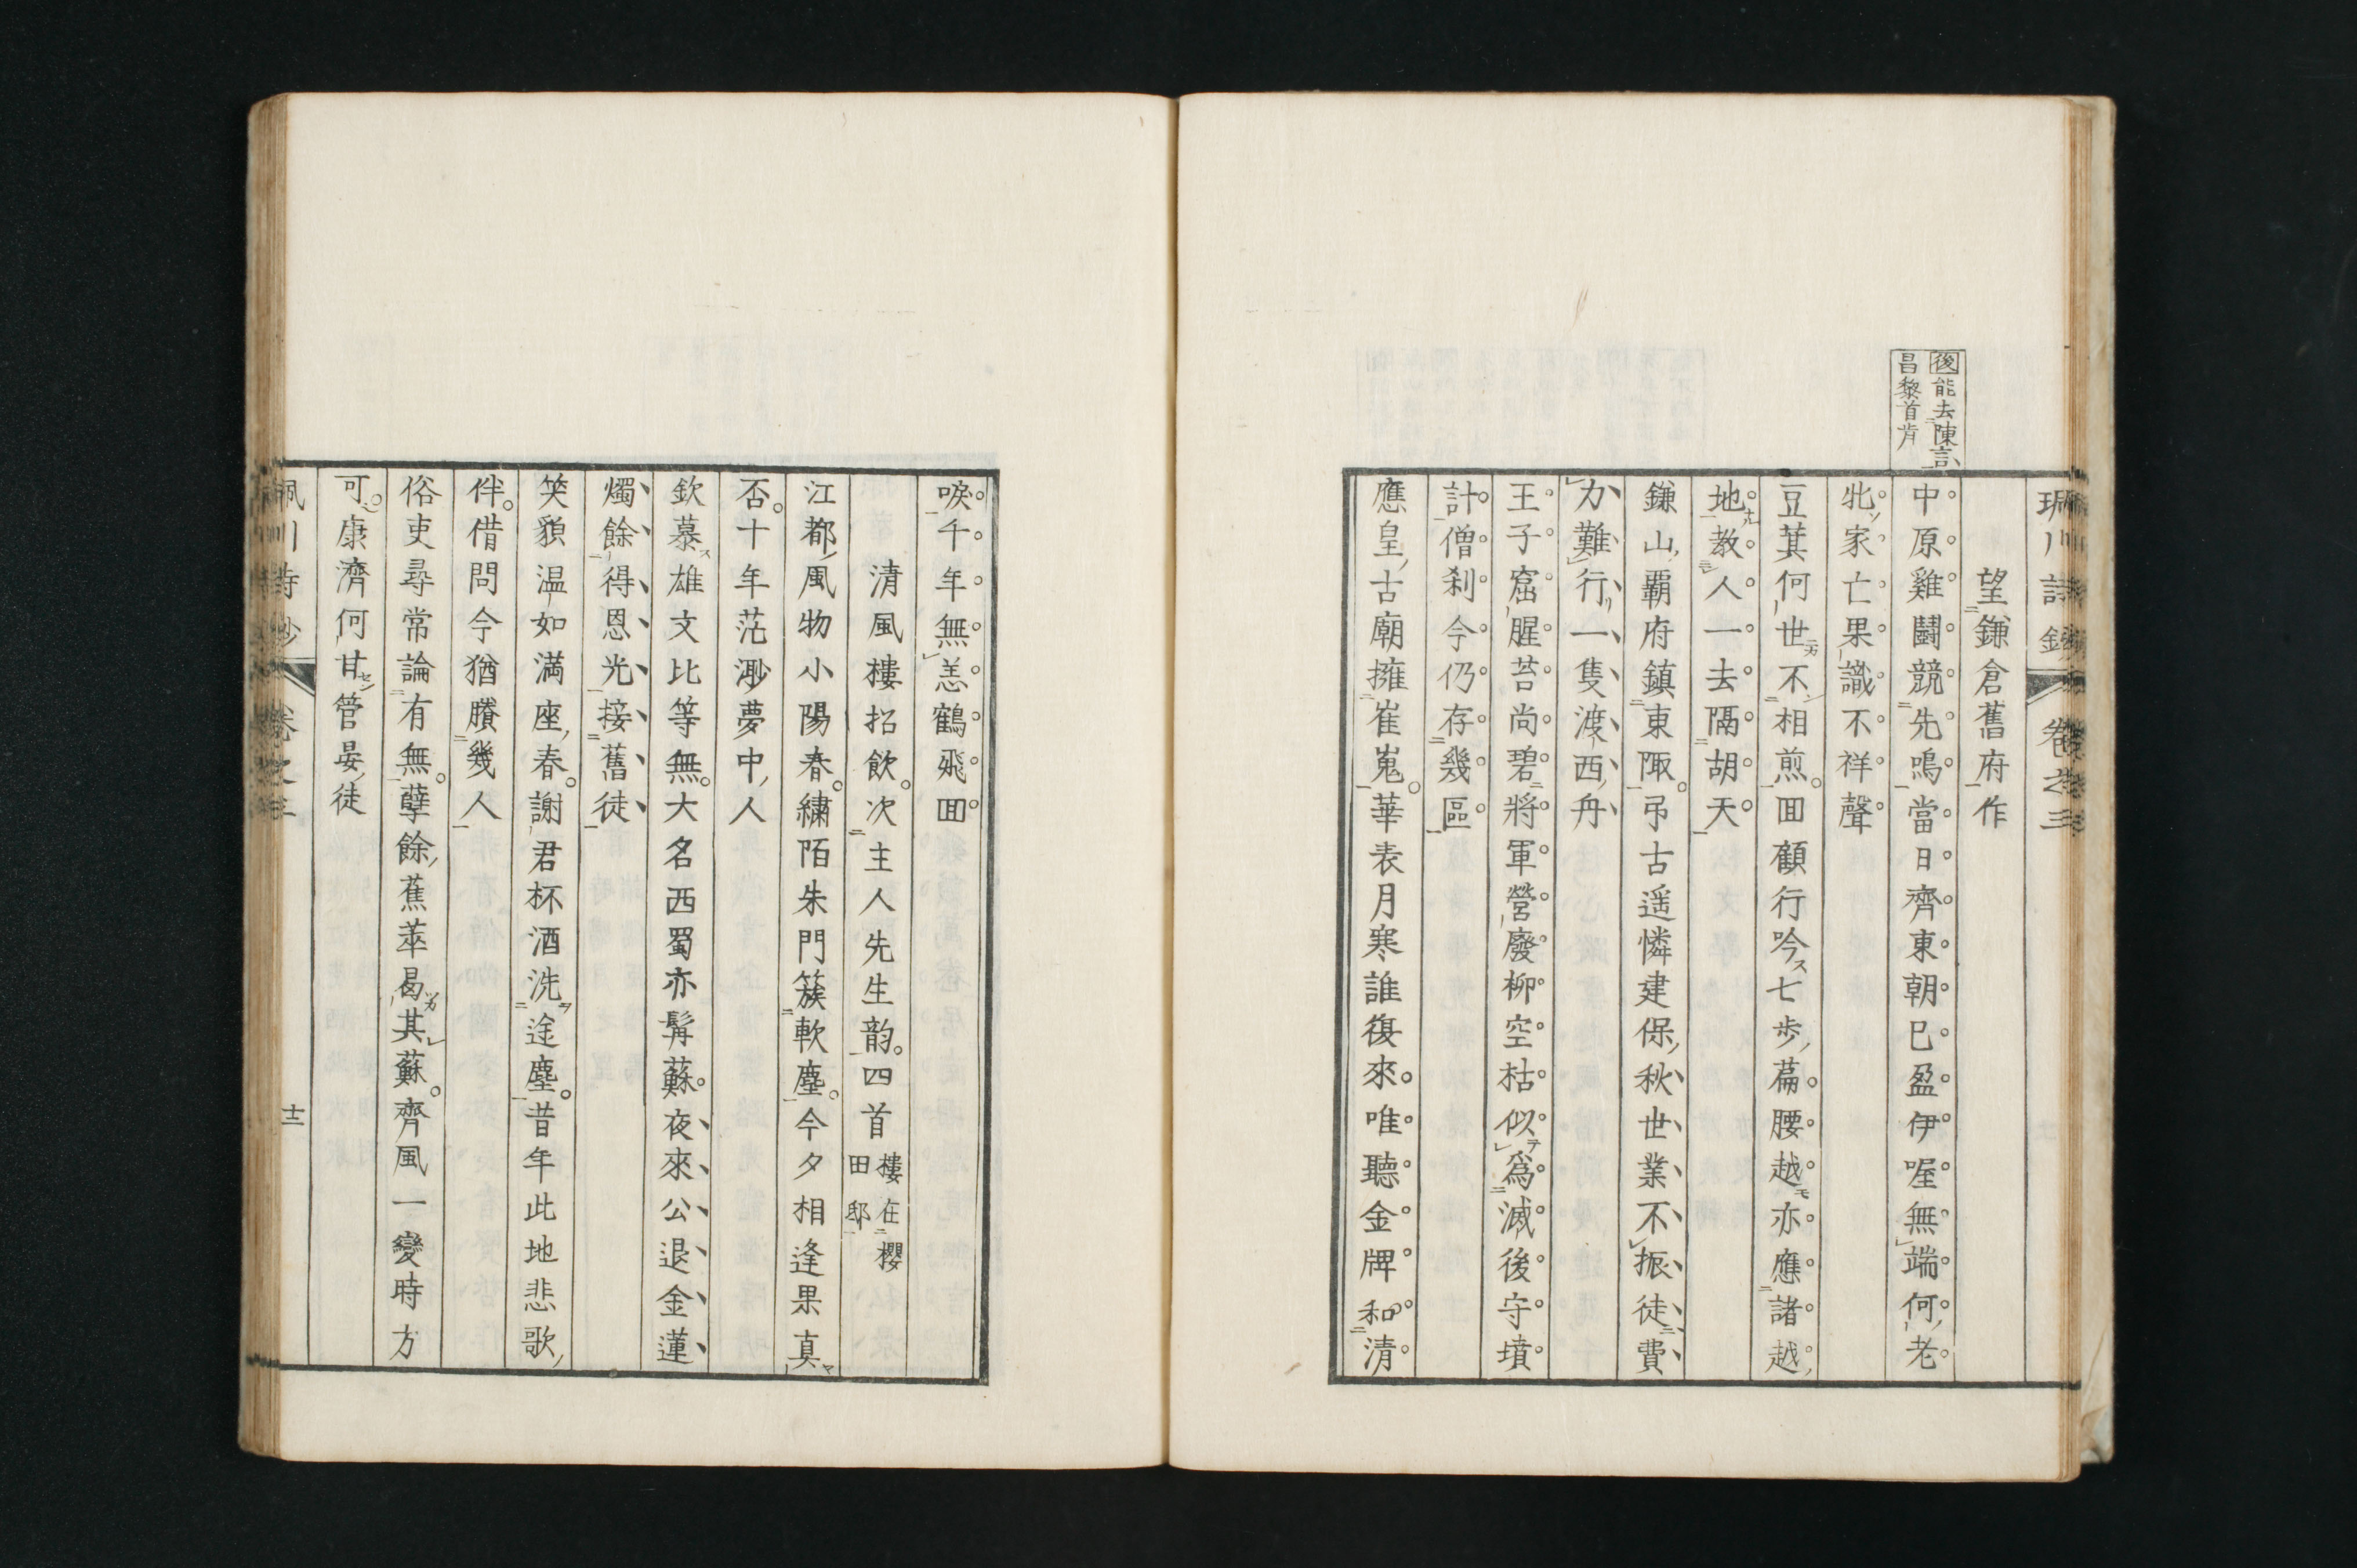 後能去陳言
昌黎首肯
望鎌倉舊府作
中原雞鬪競先鳴當日齊東朝已盈伊喔無端何老
牝家亡果識不祥聲
豆萁何世不相煎回顧行吟七步萹腰越亦應諸越
地教人一去隔胡天
鎌山霸府鎮東陬弔古遥憐建保秋世業不振徒費
力難行一隻渡西舟
王子窟腥苔尚碧將軍營廢柳空枯似為滅後守墳
計僧刹今仍存幾區
應皇古廟擁崔嵬華表月寒誰復來唯聽金牌和清
唳千年無恙鶴飛回
清風樓招飲次主人先生韵四首樓在櫻田邸
江都風物小陽春繍陌朱門簇軟塵今夕相逢果真
否十年茫渺夢中人
欽慕雄文比等無大名西蜀亦髯蘇夜來公退金蓮
燭餘得恩光接舊徒
笑貌温如満座春謝君杯酒洗途塵昔年此地悲歌
伴借問今猶賸幾人
俗吏尋常論有無孽餘蕉萃曷其蘇齊風一變時方
可康濟何甘管晏徒
卷之三
十二